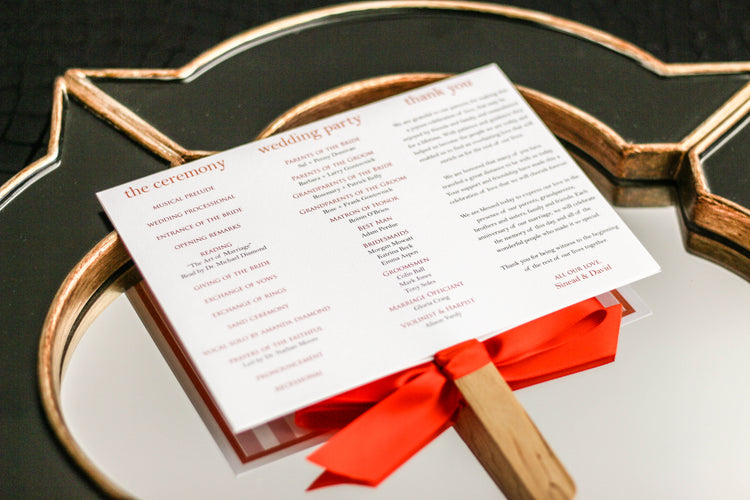 the ceremony
MUSICAL PRELUDE
WEDDING PROCESSIONAL
ENTRANCE OF THE BRIDE
OPENING REMARKS
READING
"The Art of Marriage"
Read by Dr. Michael Dismond
GIVING OF THE BRIDE
EXCHANGE OF VOWS
EXCHANGE OF RINGS
SAND CEREMONY
VOCAL SOLO BY AMANDA DIAMOND
PRAYERS OF THE FAITHFUL
Led by Dr. Nathan Moore
PRONOUNCEMENT
RECESSIONAL
wedding party
PARENTS OF THE BRIDE
Sal + Penny Donovan
PARENTS OF THE GROOM
Barbara + Larry
GRANDPARENTS OF THE BRIDE
Rosemary + Patrick Kelly
GRANDPARENTS OF THE GROOM
+ Frank
MATRON OF HONOR
O'Brien
BEST MAN
Adam Perdue
BRIDESMAIDS
Morgan Mowatt
Katrina Beck
Emma Aspen
GROOMSMEN
Colin Ball
Mark Jones
Tony Soles
MARRIAGE OFFICIANT
Gloria Craig
VIOLINIST & HARPIST
Alison Vardy
thank you
We are grateful to our parents for making this
a joyous celebration of two, that may be
enjoyed by friends and family, and remembered
for a lifetime. With patience and guidance they
helped us become the people we are today and
enabled us to find an everlasting love that will
enrich us for the rest of our lives.
We are honored that many of you have
traveled a great distance to be with us today.
Your support and friendship have made this a
celebration of love that we will cherish forever.
We are blessed today to express our love in the
presence of our parents, grandparents,
brothers and sisters, family and friends. Each
anniversary of our marriage, we will celebrate
the memory of this day, and all of the
wonderful people who make it so special.
Thank you for being witness to the beginning
of the rest of our lives together.
ALL OUR LOVE,
Sinead & David